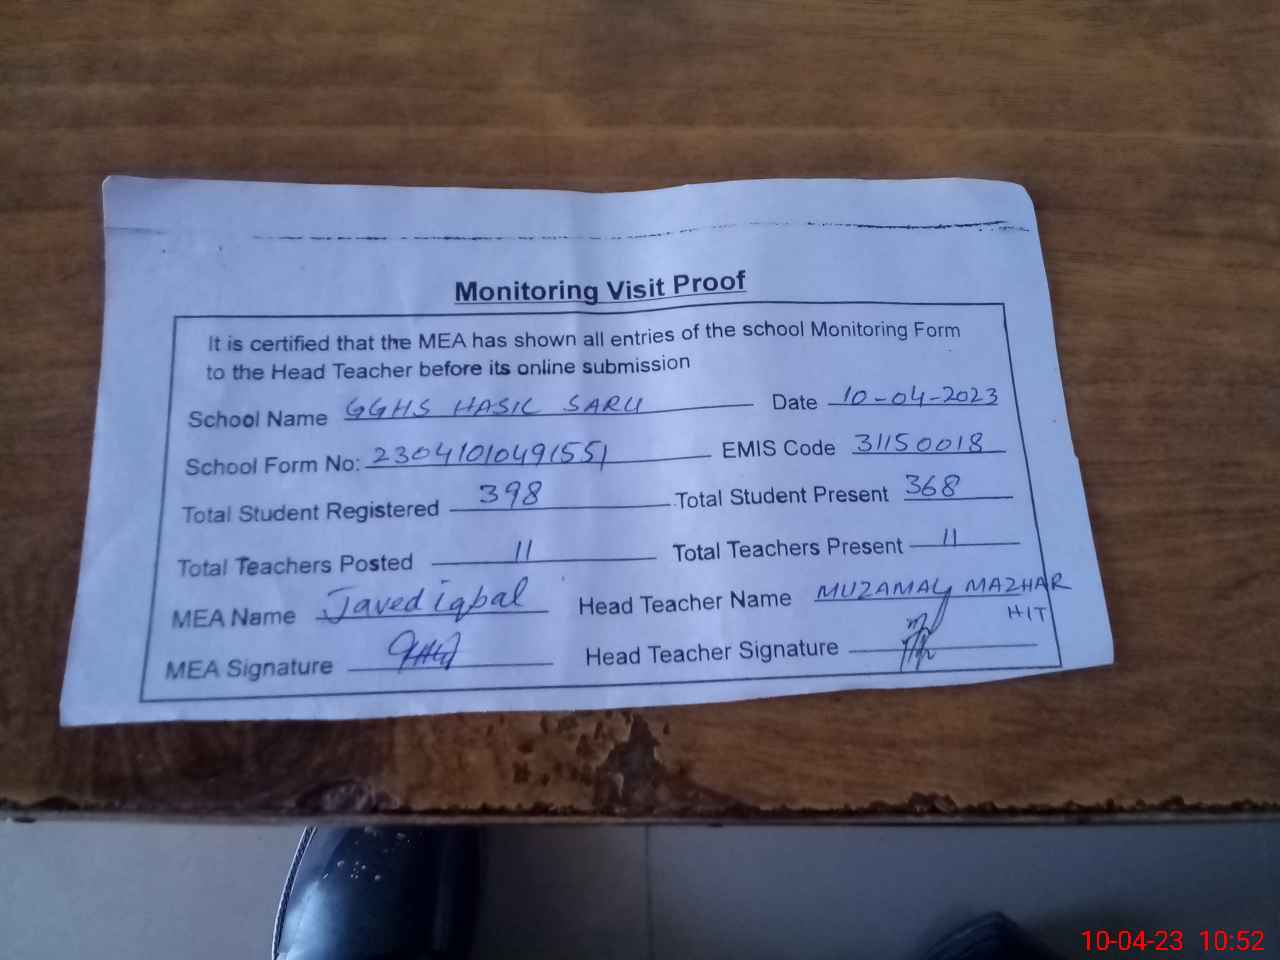 Monitoring Visit Proof
It is certified that the MEA has shown all entries of the school Monitoring Form
to the Head Teacher before its online submission
School Name GGHS HASIL SARU Date 10-04-2023
School Form No: 23041010491551 EMIS Code 31150018
Total Student Registered 398 Total Student Present 368
Total Teachers Posted 11 Total Teachers Present 11
MEA Name Javed iqbal Head Teacher Name MUZAMAL MAZHAR
HIT
MEA Signature Head Teacher Signature
10-04-23 10:52